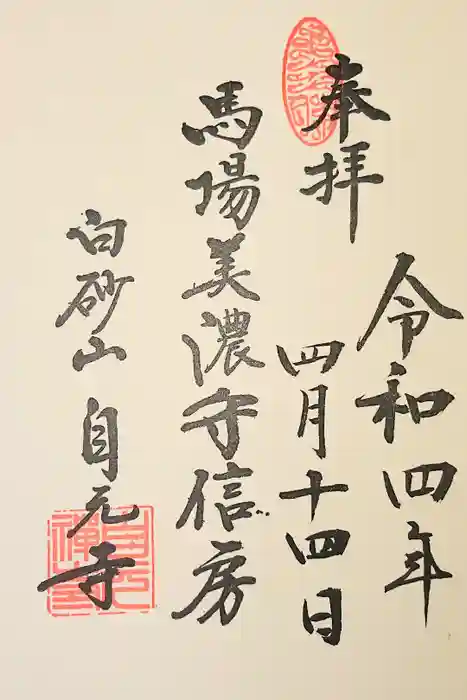 奉拝
令和四年
四月十四日
馬場美濃守信房
白砂山 自元寺